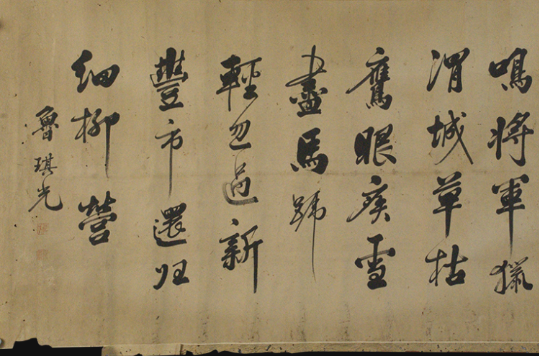 鳴將軍獵
渭城草枯
鷹眼疾雪
盡馬蹄
輕忽過新
豐市還歸
細柳營
魯琪光